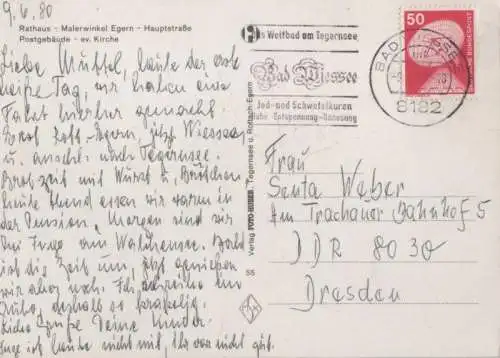 9.6.80
Rathaus - Malerwinkel Egern - Hauptstraße
Postgebäude - ev. Kirche
Liebe Muttel, heute der erste
heiße Tag, wir haben eine
Fahrt hierher gemacht.
Erst Rott.-Egern, jetzt Wiessee
u. anschl. nach Tegernsee.
Brotzeit mit Wurst u. Brötchen
heute Abend essen wir warm in
der Pension. Morgen sind wir
am Walchensee. Bald
ist die Zeit um, jetzt genießen
wir aber noch.
Auto, deshalb so krakelig.
Liebe Grüße Deine Kinder.
ich heute nicht mit, ihr gut.
Verlag FOTO-HUBER, Tegernsee u. Rottach-Egern
55
Das Weltbad am Tegernsee
Bad Wiessee
Jod- und Schwefelkuren
Ruhe - Entspannung - Genesung
BAD WIESSEE
8182
50
DEUTSCHE BUNDESPOST
Frau
Senta Weber
Am Trachauer Bahnhof 5
DDR 8030
Dresden